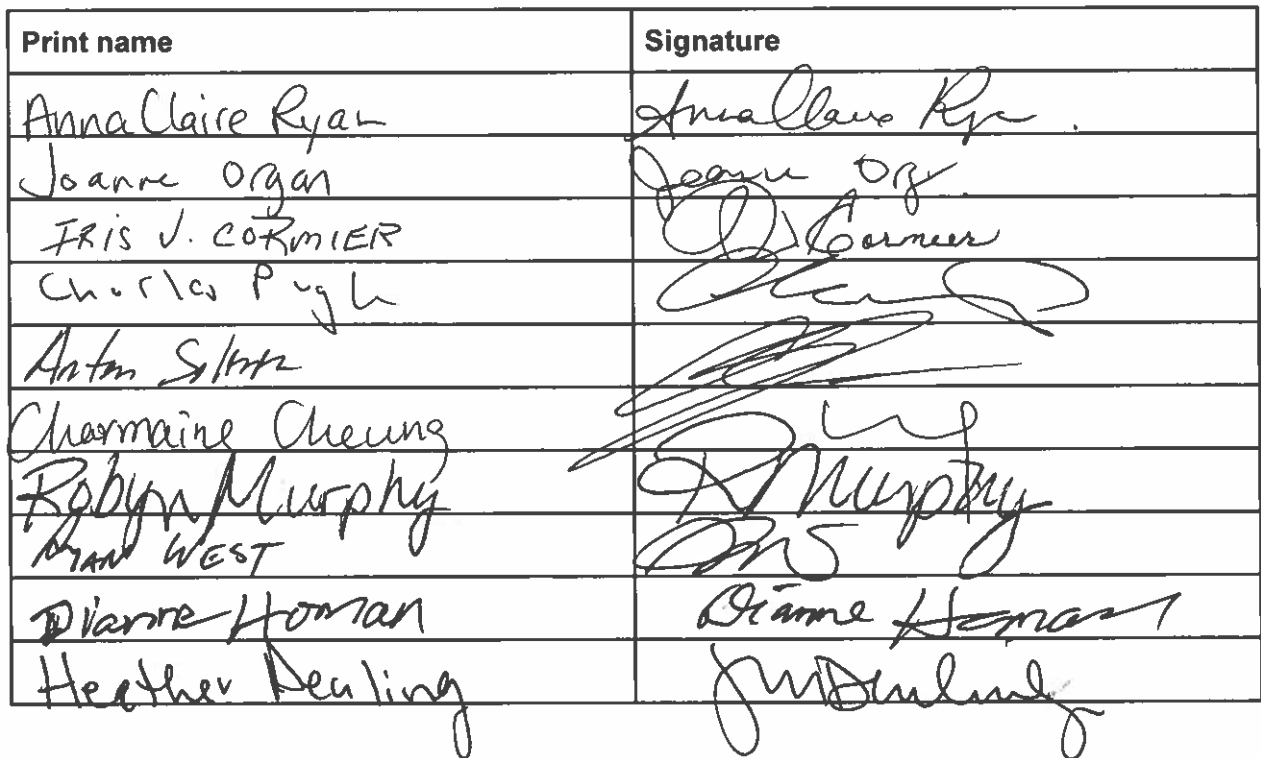 Print name Signature
Anna Claire Ryan Anna Claire Ryan
Joanne Organ Joanne Org
IRIS V. CORMIER Cormier
Charles Pugh
Anton
Charmaine Cheung
Robyn Murphy R Murphy
RYAN WEST
Dianne Homan Dianne Homan
Heather Denling